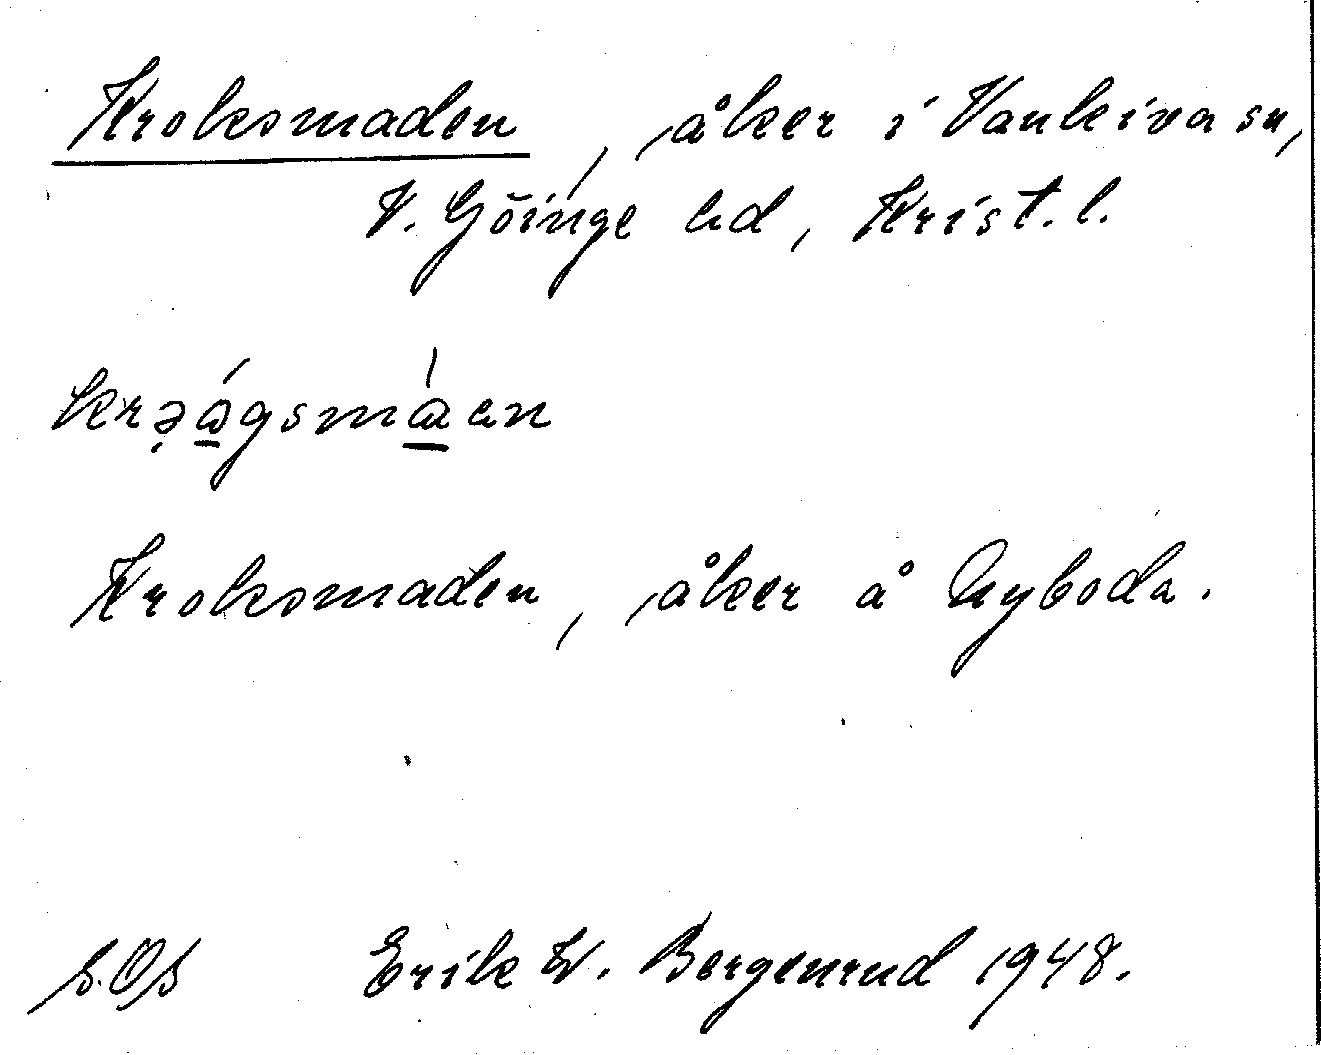 Kroksmaden, åker i Vankiva sn,
V. Göinge hd, Krist. l.
Kroksmaden, åker å Nyboda.
Erik W. Bergenrud 1948.